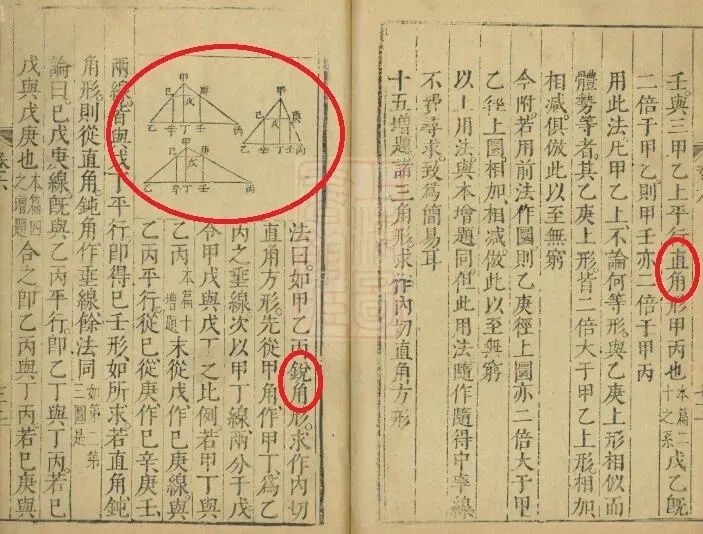 壬與三甲乙上平行直角形甲丙也本篇二十之系戊乙既
二倍于甲乙則甲壬亦二倍于甲丙
用此法凡甲乙上不論何等形與乙庚上形相似而
體勢等者其乙庚上形皆二倍大于甲乙上形相加
相減俱倣此以至無窮
今附若用前法作圖則乙庚徑上圜亦二倍大于甲
乙徑上圜相加相減倣此以至無窮
以上用法與本增題同但此用法隨作隨得中率線
不費尋求致為簡易耳
十五增題諸三角形求作內切直角方形
甲 己 庚 戊 乙 辛 丁 壬 丙
甲 己 庚 戊 乙 辛 丁 壬 丙
甲 己 庚 戊 乙 辛 丁 壬 丙
法曰如甲乙丙銳角形求作內切
直角方形先從甲角作甲丁為乙
丙之垂線次以甲丁線兩分于戊
令甲戊與戊丁之比例若甲丁與
乙丙本篇十增題末從戊作己庚線與
乙丙平行從己從庚作己辛庚壬
兩線皆與戊丁平行即得己壬形如所求若直角鈍
角形則從直角鈍角作垂線餘法同如第二第三圖是
論曰己戊庚線既與乙丙平行即乙丁與丁丙若己
戊與戊庚也本篇四之增題合之即乙丙與丁丙若己庚與